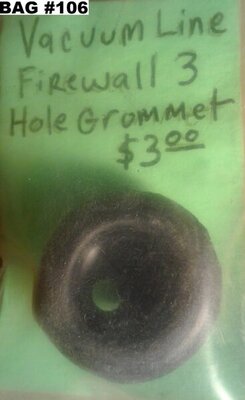 BAG #106
Vacuum Line
Firewall 3
Hole Grommet
$3.00